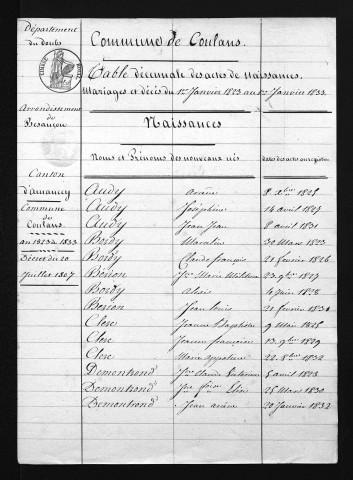 Département
du doubs
Commune de Coulans.
Table décennale des actes de Naissances,
Mariages et décès du 1er Janvier 1823 au 1er Janvier 1833.
Arrondissement
de
Besançon
Naissances
Noms et Prénoms des nouveaux nés
dates des actes ou registres
Canton
d'amancey
Commune
de
Coulans.
an 1823 à 1833
Décret du 20
Juillet 1807
Audy 8 xbre 1825
Audy Joséphine 14 avril 1827
Audy Jean Jean 8 avril 1831
Bordy 30 Mars 1823
Bordy Claude françois 21 février 1826
Jne Marie 23 9bre 1827
Bordy Aloïs 4 Juin 1828
Jean louis 21 février 1831
Clerc Jeanne Baptiste 9 Mai 1828
Clerc Jeanne françoise 13 9bre 1829
Clerc Marie 22 8bre 1832
Demontrond Jn claude 5 avril 1823
Demontrond 25 Mars 1830
Demontrond Jean 20 Janvier 1832